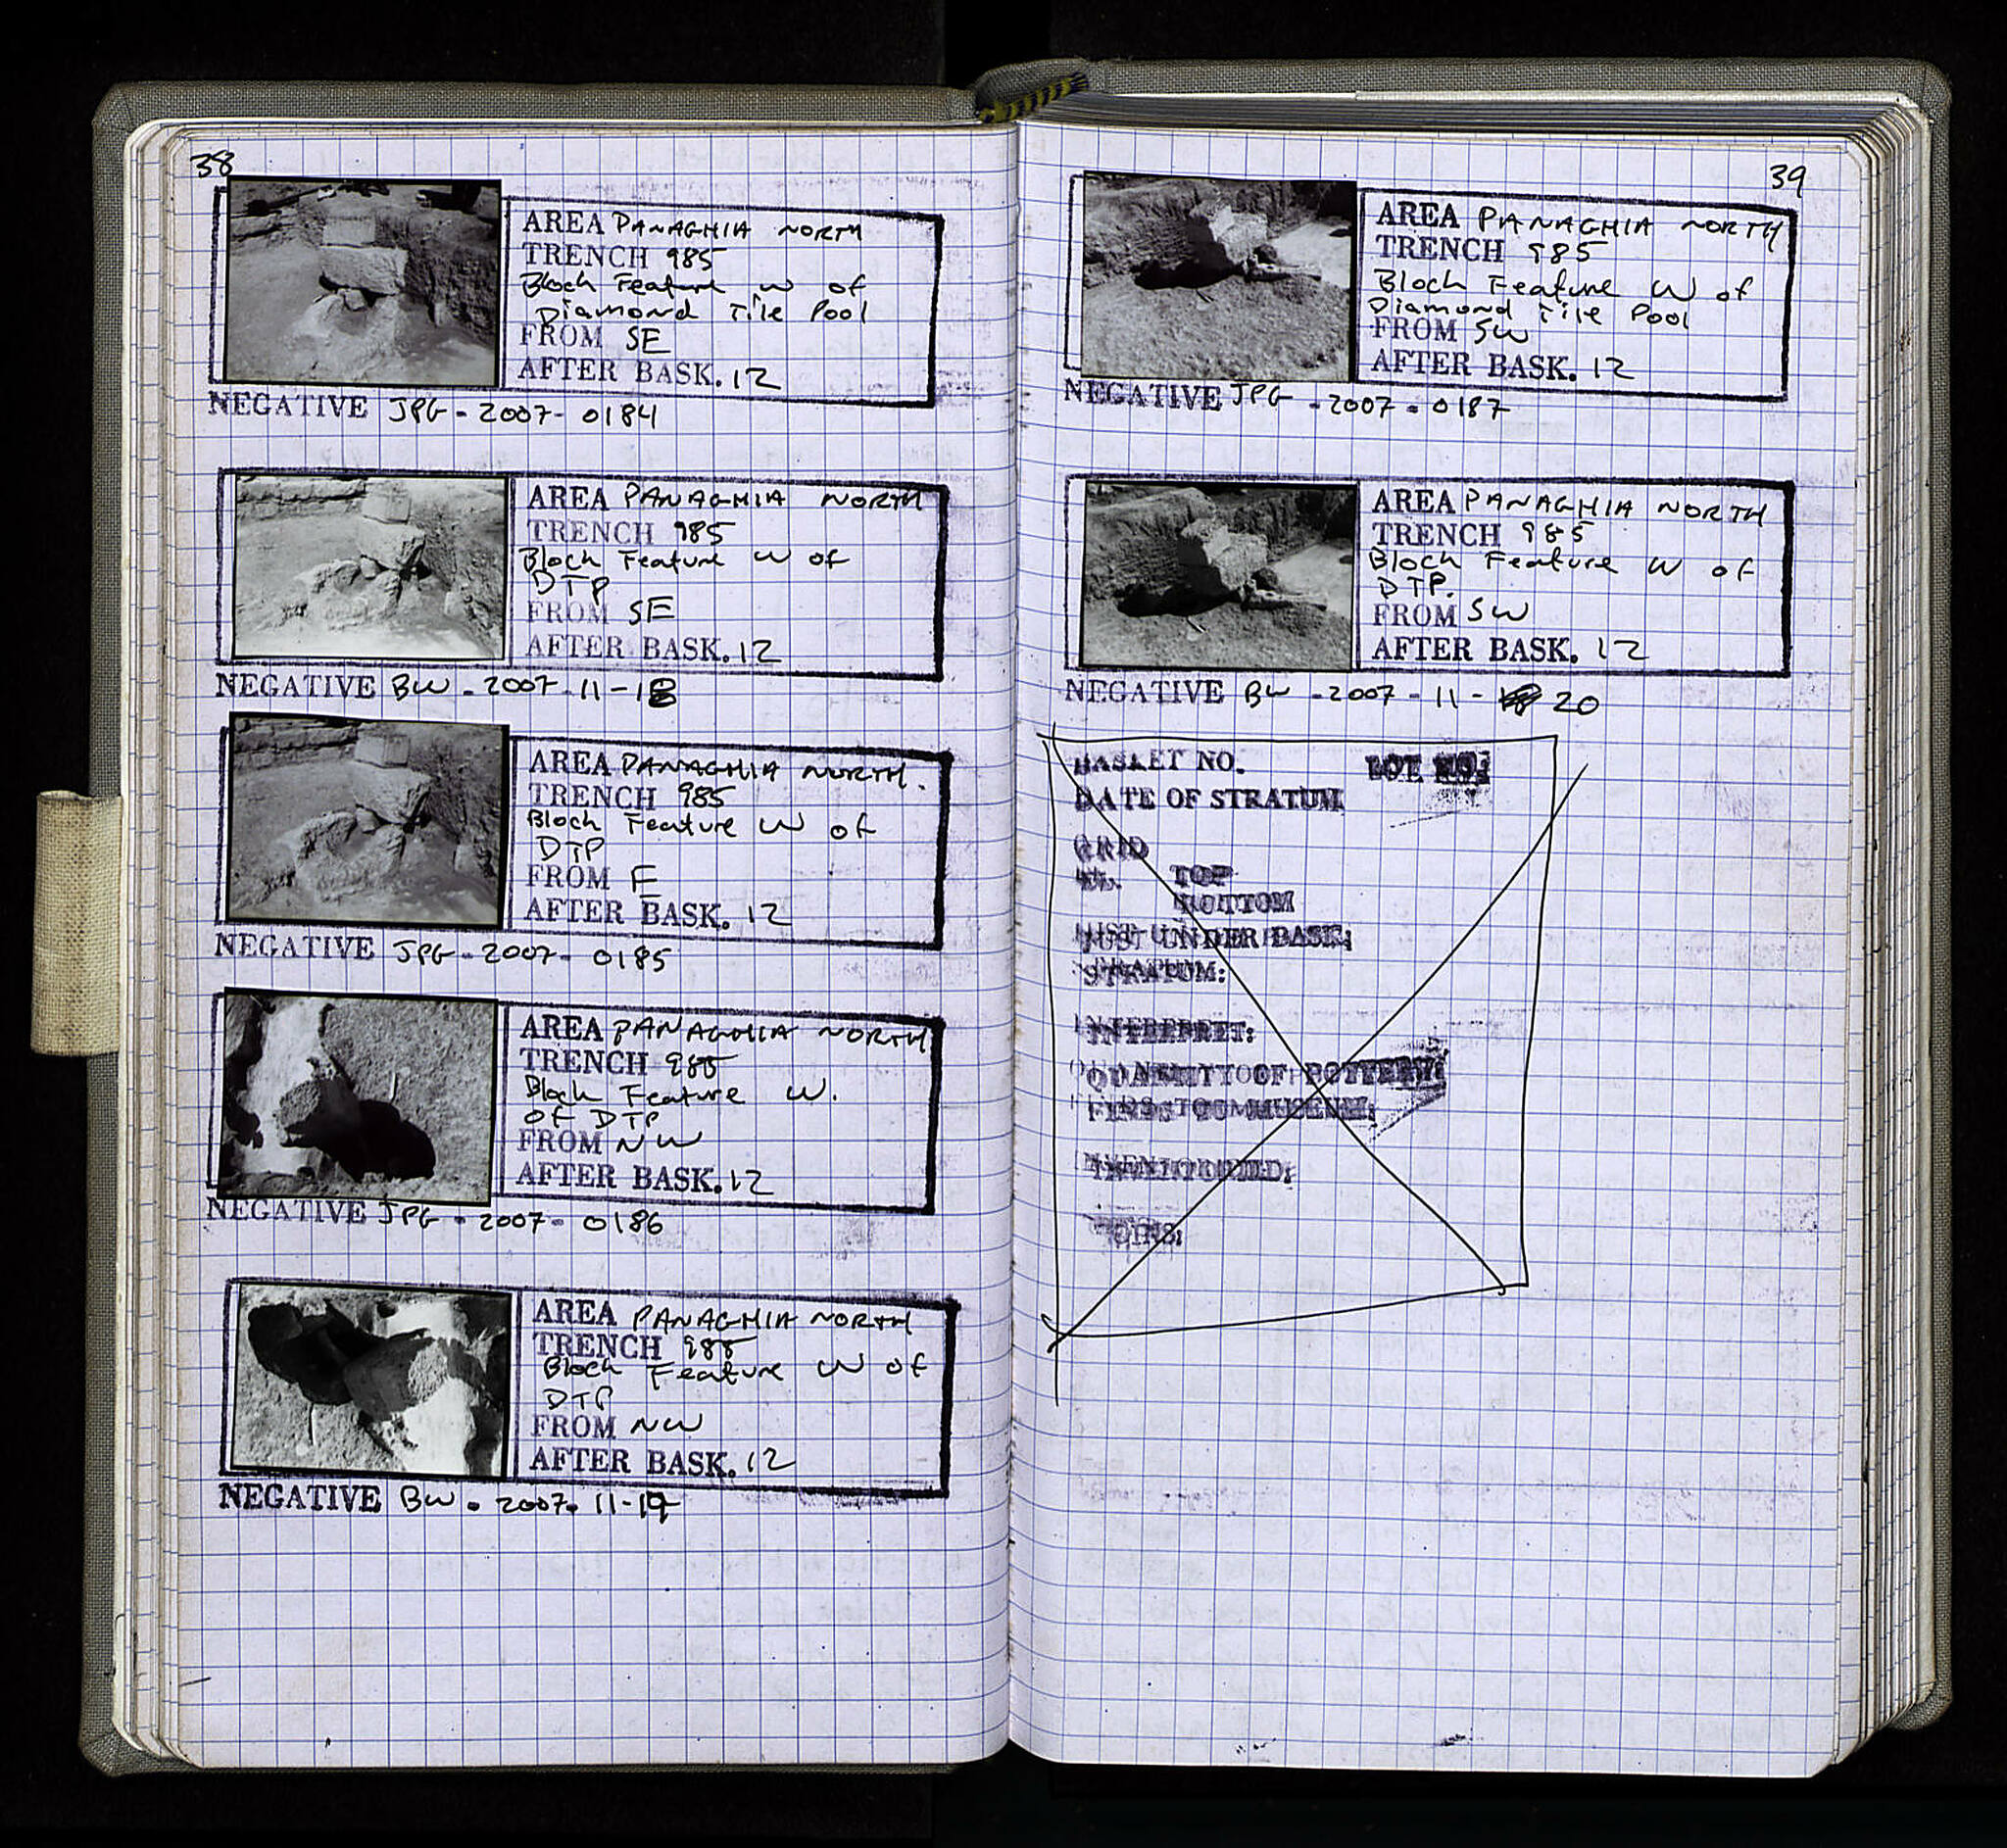 38
AREA PANAGHIA NORTH
TRENCH 985
Block Feature W of
Diamond Tile Pool
FROM SE
AFTER BASK. 12
NEGATIVE JPG - 2007 - 0184
AREA PANAGHIA NORTH
TRENCH 985
Block Feature W of
DTP
FROM SE
AFTER BASK. 12
NEGATIVE BW - 2007 - 11 - 18
AREA PANAGHIA NORTH.
TRENCH 985
Block Feature W of
DTP
FROM E
AFTER BASK. 12
NEGATIVE JPG - 2007 - 0185
AREA PANAGHIA NORTH
TRENCH 985
Block Feature W.
of DTP
FROM NW
AFTER BASK. 12
NEGATIVE JPG - 2007 - 0186
AREA PANAGHIA NORTH
TRENCH 985
Block Feature W of
DTP
FROM NW
AFTER BASK. 12
NEGATIVE BW - 2007 - 11 - 19
39
AREA PANAGHIA NORTH
TRENCH 985
Block Feature W of
Diamond Tile Pool
FROM SW
AFTER BASK. 12
NEGATIVE JPG - 2007 - 0187
AREA PANAGHIA NORTH
TRENCH 985
Block Feature W of
DTP.
FROM SW
AFTER BASK. 12
NEGATIVE BW - 2007 - 11 - 20
BASKET NO. LOT NO:
DATE OF STRATUM
GRID
EL. TOP
BOTTOM
JUST UNDER BASK:
STRATUM:
INTERPRET:
QUANTITY OF POTTERY:
FINDS TO MUSEUM:
INVENTORIED:
COINS: